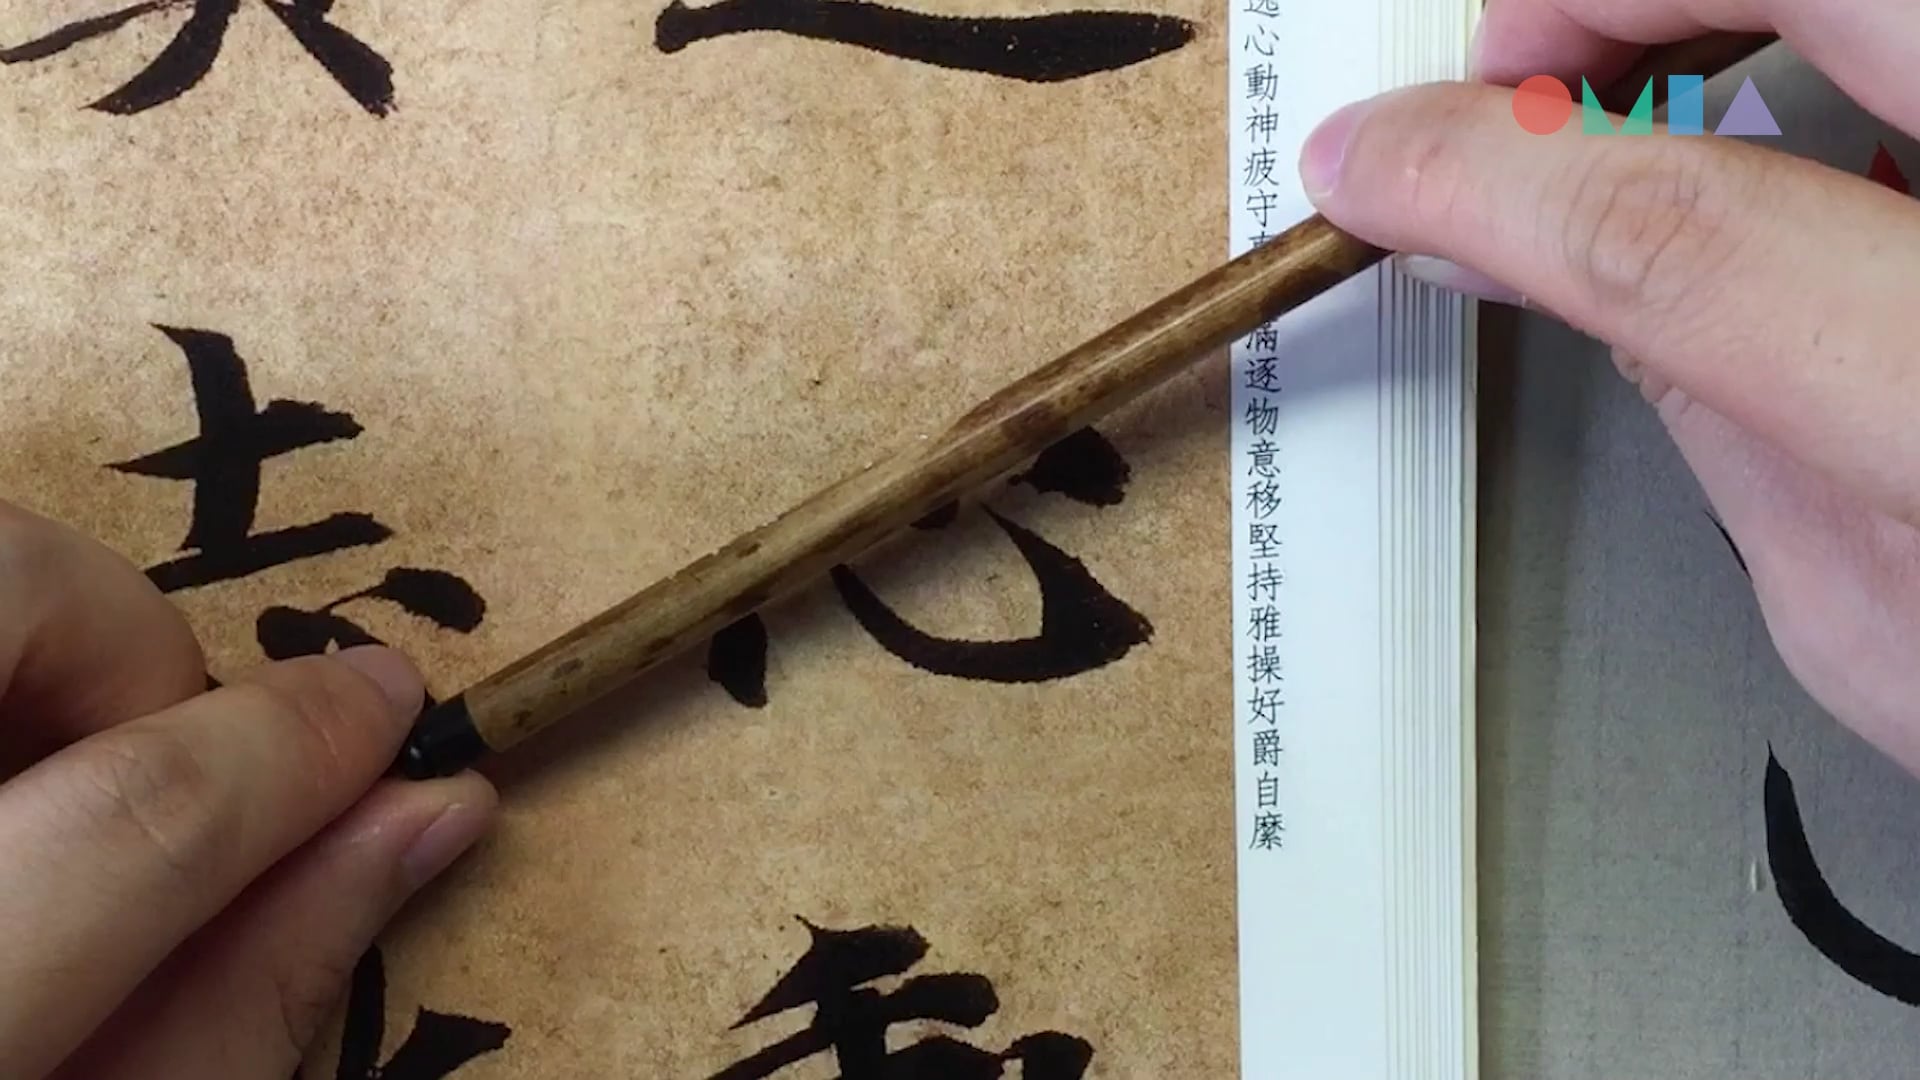 OMIA
心動神疲守
滿逐物意移堅持雅操好爵自縻
心
志